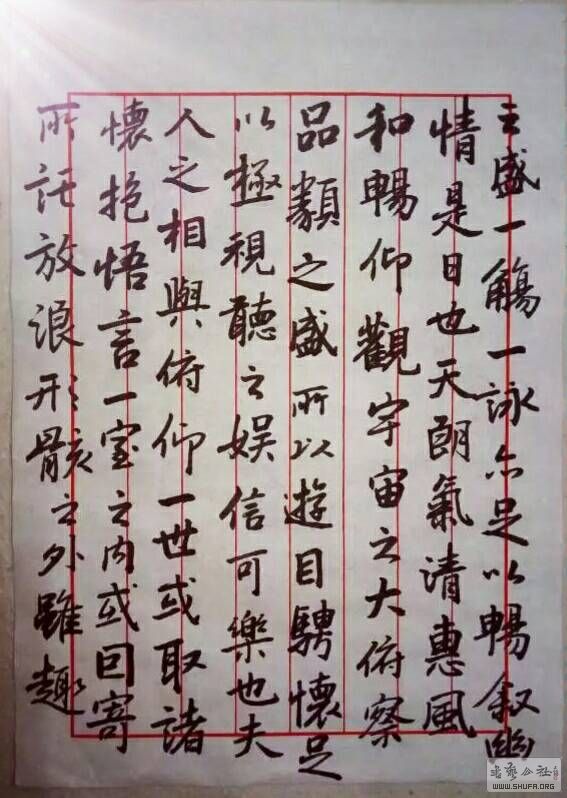 之盛一觴一詠亦足以暢叙幽
情是日也天朗氣清惠風
和暢仰觀宇宙之大俯察
品類之盛所以遊目騁懷足
以極視聽之娱信可樂也夫
人之相與俯仰一世或取諸
懷抱悟言一室之内或因寄
所託放浪形骸之外雖趣
书艺公社
WWW.SHUFA.ORG